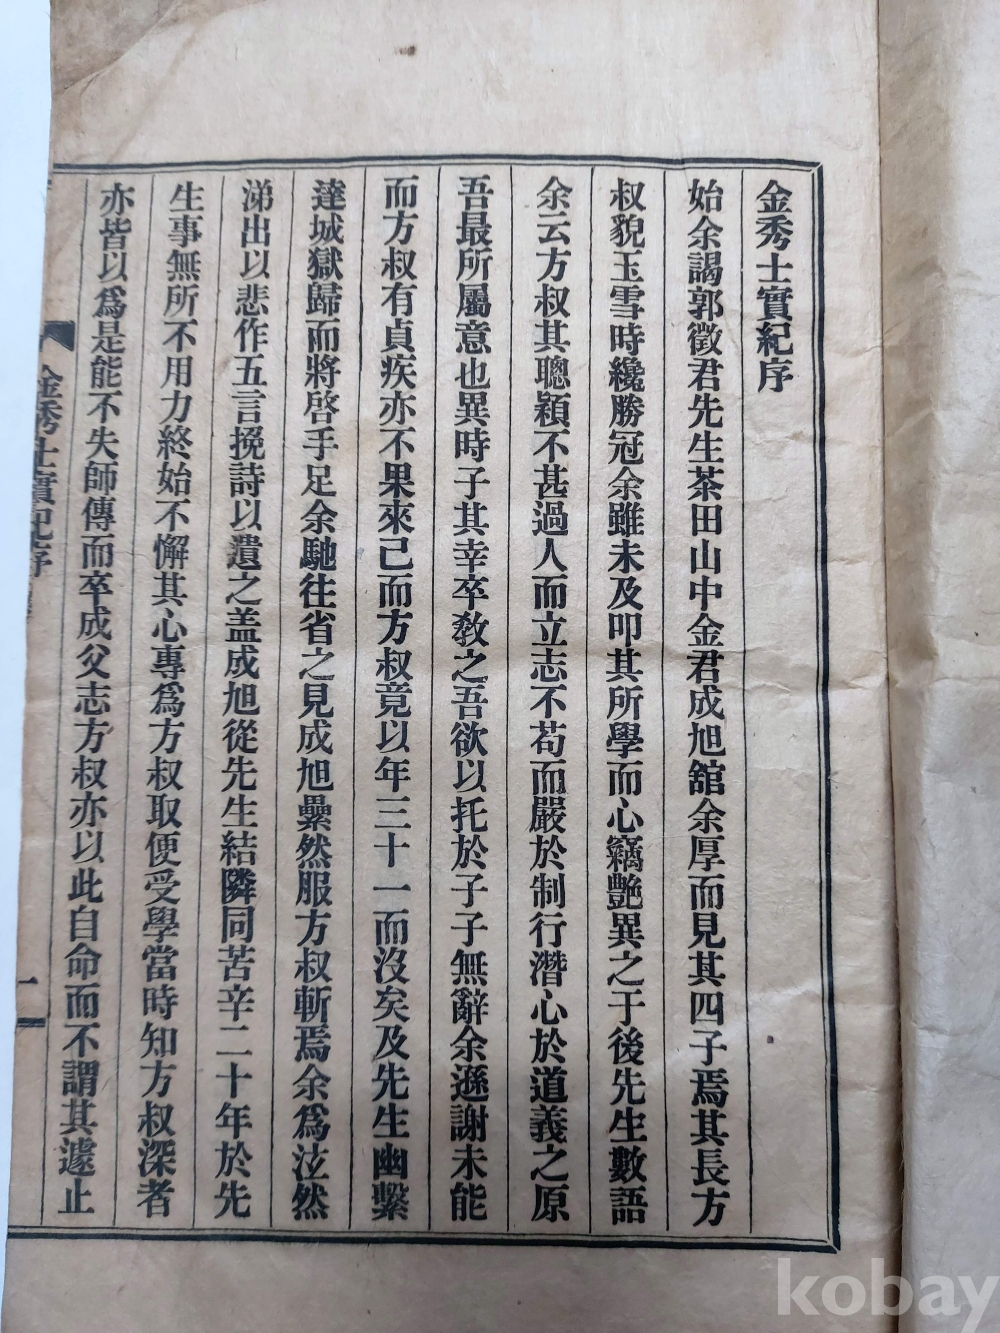 金秀士實紀序
始余謁郭徵君先生茶田山中金君成旭舘余厚而見其四子焉其長方
叔貌玉雪時纔勝冠余雖未及叩其所學而心竊艶異之于後先生數語
余云方叔其聰穎不甚過人而立志不苟而嚴於制行潛心於道義之原
吾最所屬意也異時子其幸卒敎之吾欲以托於子子無辭余遜謝未能
而方叔有貞疾亦不果來已而方叔竟以年三十一而沒矣及先生幽繫
達城獄歸而將啓手足余馳往省之見成旭纍然服方叔斬焉余爲泣然
涕出以悲作五言挽詩以遺之盖成旭從先生結隣同苦辛二十年於先
生事無所不用力終始不懈其心專爲方叔取便受學當時知方叔深者
亦皆以爲是能不失師傳而卒成父志方叔亦以此自命而不謂其遽止
金秀士實紀序
一
kobay